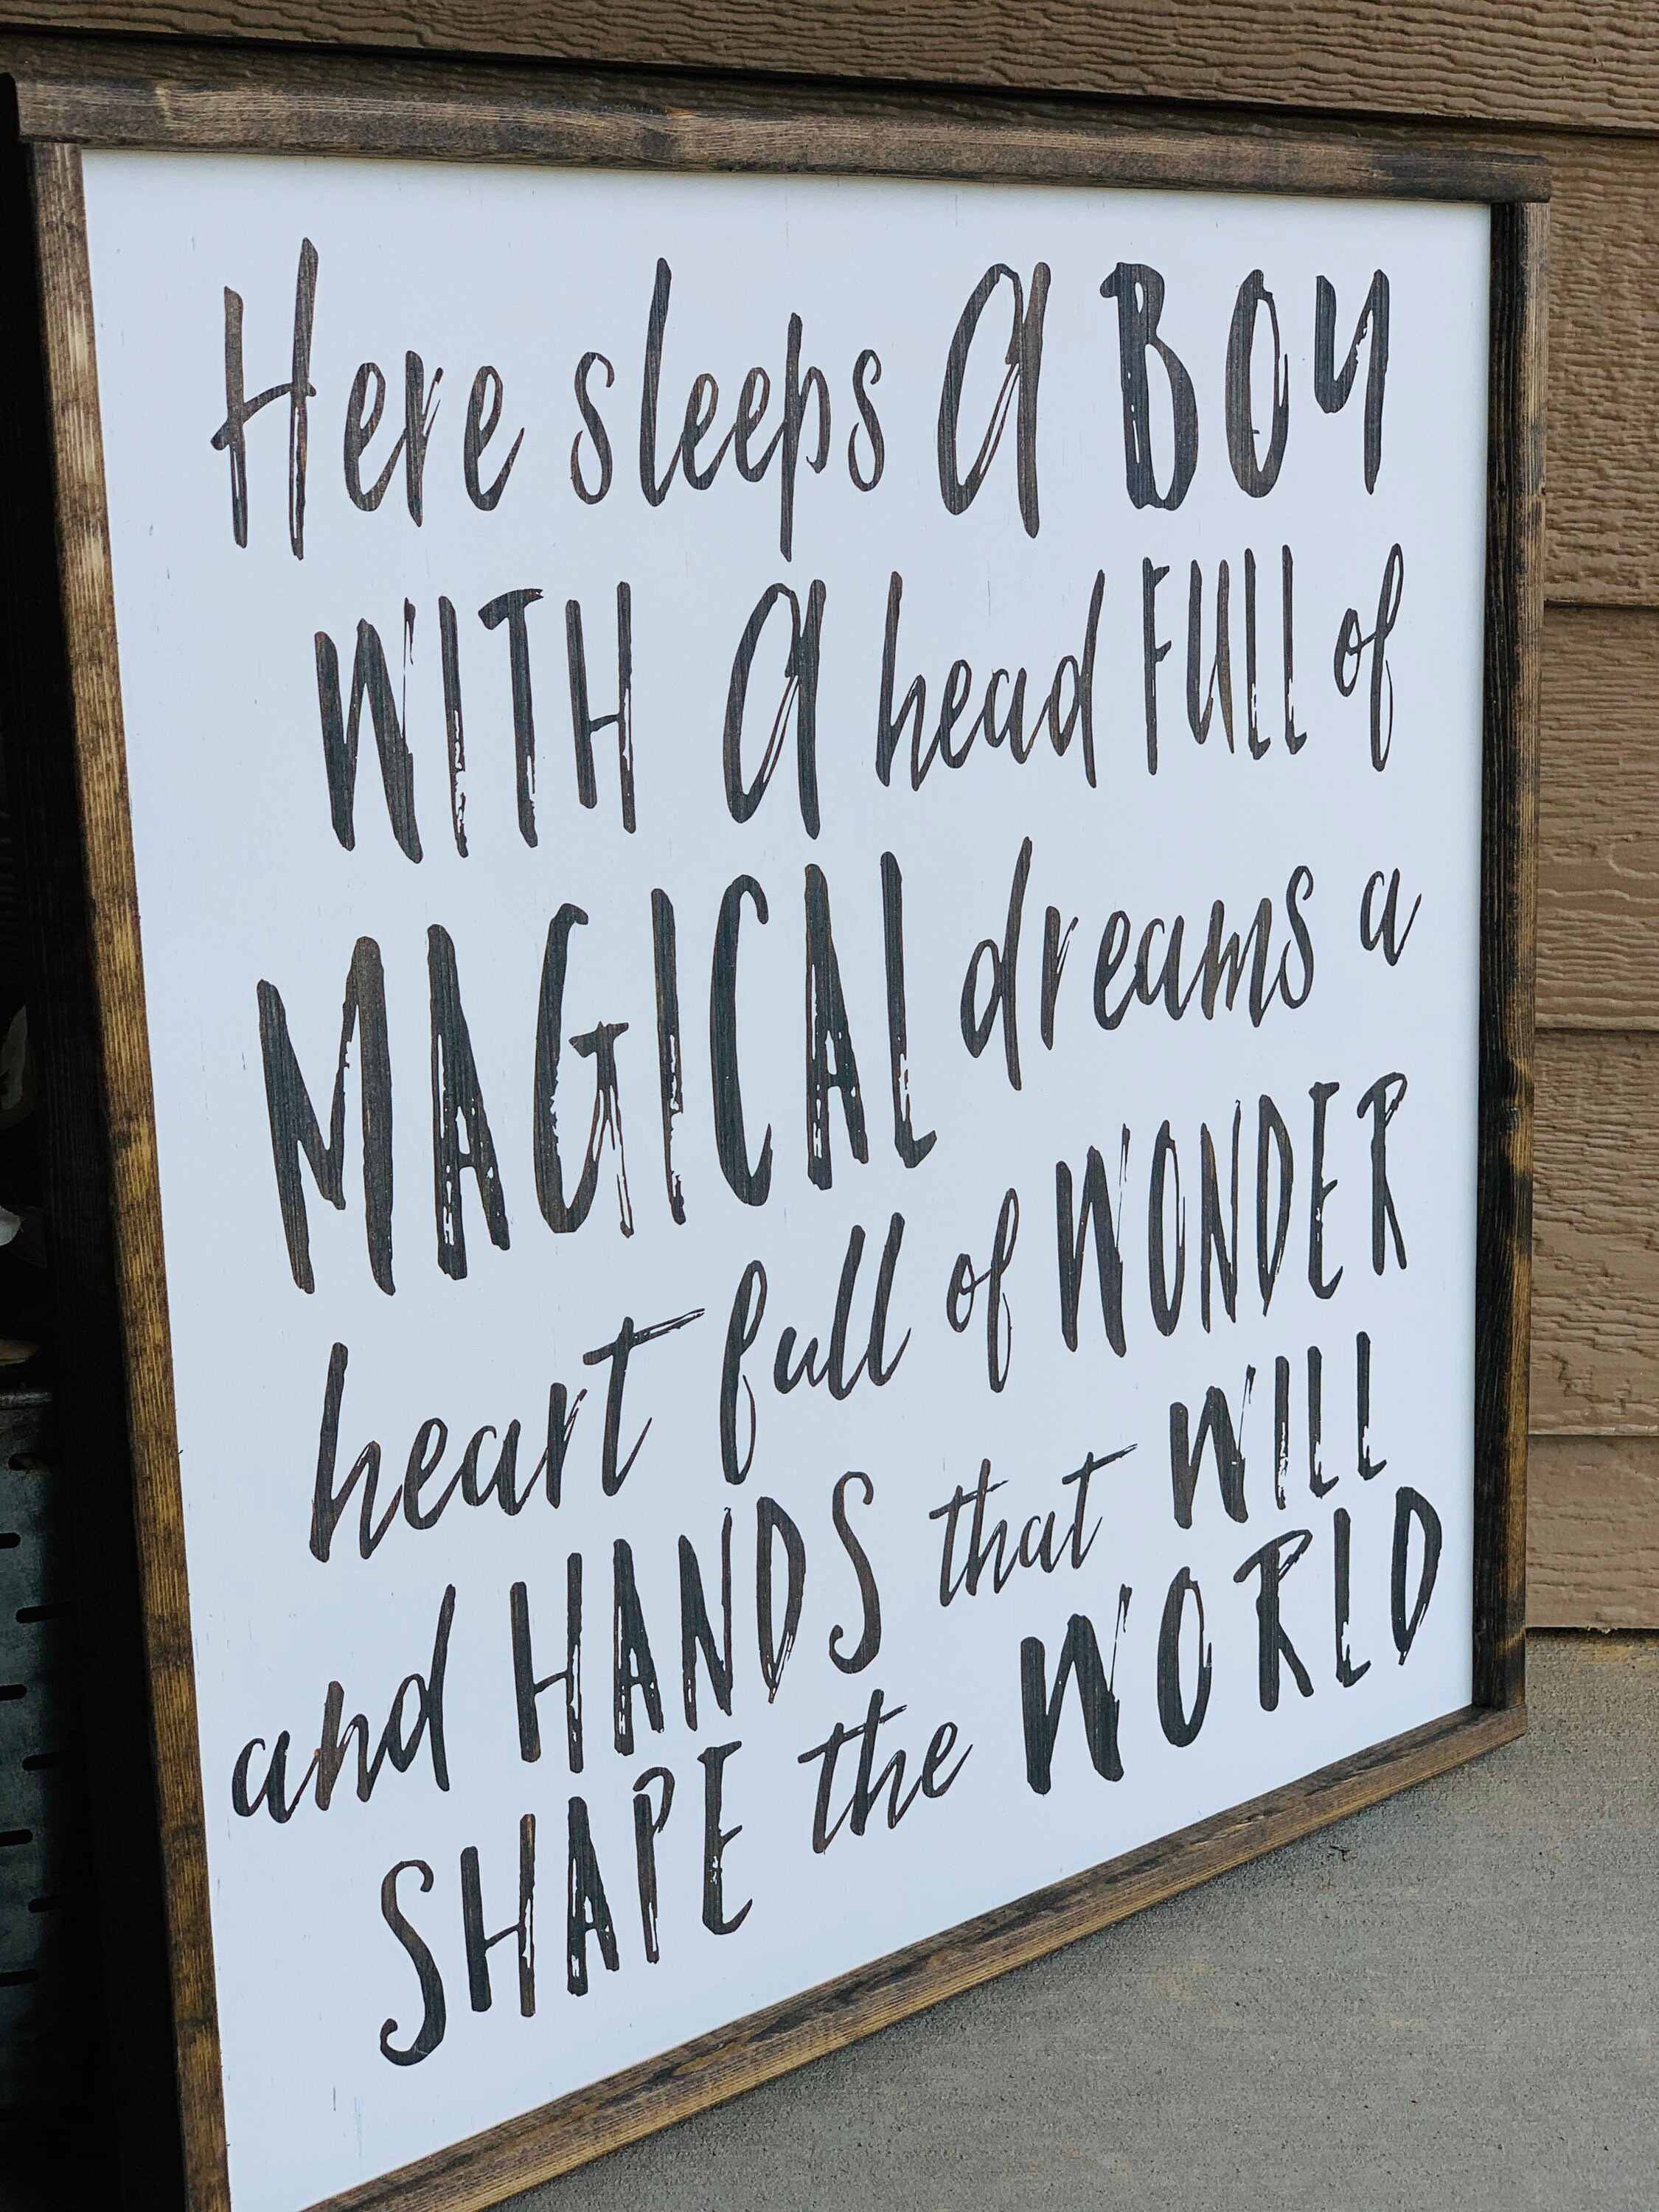 Here sleeps a BOY
WITH a head FULL of
MAGICAL dreams a
heart full of WONDER
and HANDS that WILL
SHAPE the WORLD